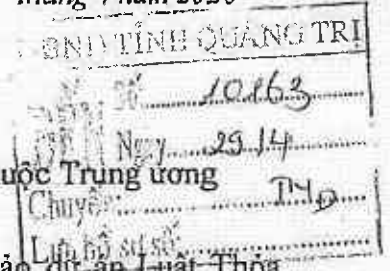 tháng 4 năm 2020
UBND TỈNH QUẢNG TRỊ
ĐẾN Số: 10163
Ngày: 29/4
uộc Trung ương
Chuyển:
Lưu hồ sơ số:
ảo dự án Luật Thỏa